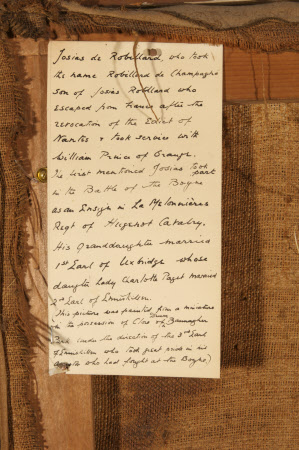 Josias de Robillard, who took
the name Robillard de Champagné
son of Josias Robillard who
escaped from France after the
revocation of the Edict of
Nantes & took service with
William Prince of Orange.
The first mentioned Josias took part
in the Battle of the Boyne
as an Ensign in La Melonnières
Regt of Hugenot Cavalry.
His Granddaughter married
1st Earl of Uxbridge whose
daughter Lady Charlotte Paget married
2nd Earl of Enniskillen.
This picture was painted from a miniature
in the possession of
under the direction of the 3rd Earl
of Enniskillen who took great pride in his
who had fought at the Boyne)